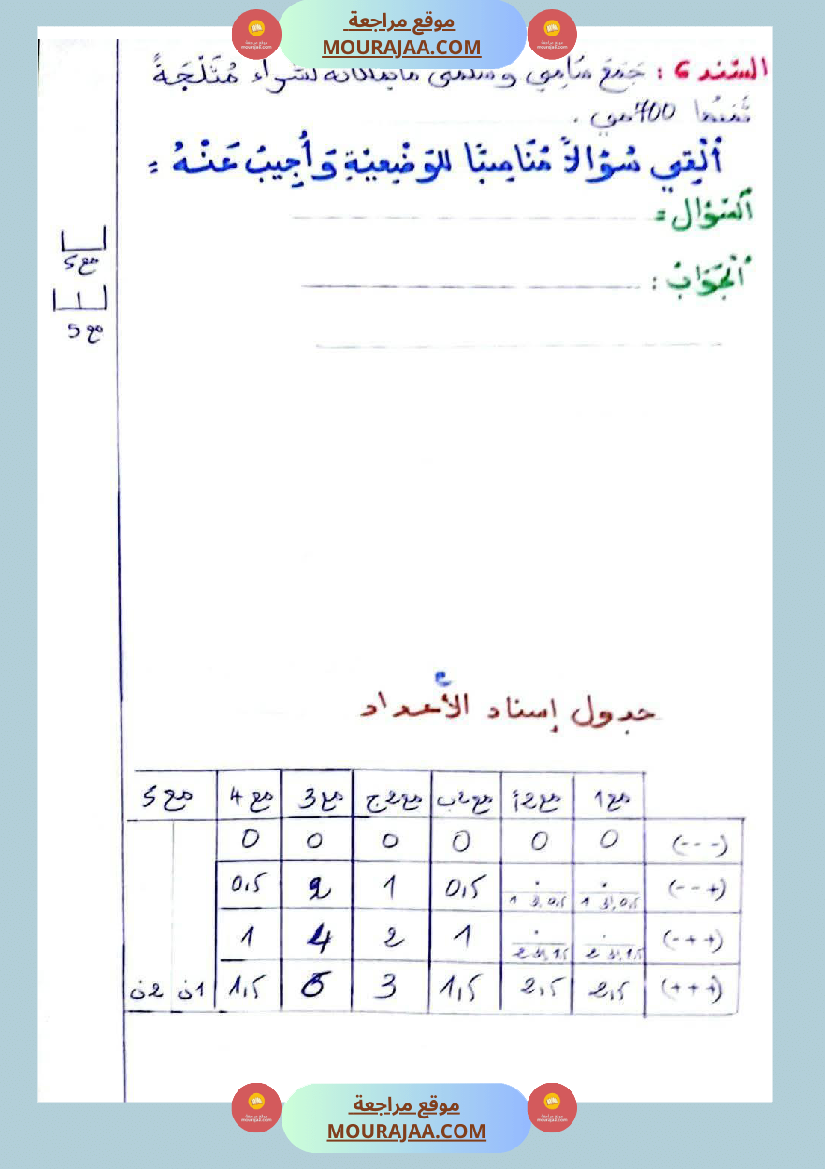 موقع مراجعة
MOURAJAA.COM
السند 6 : جَمَعَ سَامِي وَسَلْمَى مَا يملكانه لشراء مُثَلَّجَةً
ثَمَنُهَا 400 مي .
أُلْقِي سُؤَالاً مُنَاسِبًا للوَضْعِيَّةِ وَأُجِيبُ عَنْهُ :
اَلسُّؤَال :
مع 5
اَلْجَوَابُ :
مع 5
جدول إسناد الأعداد
مع 1 مع 2أ مع 2ب مع 2ج مع 3 مع 4 مع 5
(- - -) 0 0 0 0 0 0
(- - +) 0,5 أو 1 0,5 أو 1 0,5 1 2 0,5
(- + +) 1,5 أو 2 1,5 أو 2 1 2 4 1
(+ + +) 2,5 2,5 1,5 3 5 1,5 1ن 2ن
موقع مراجعة
MOURAJAA.COM